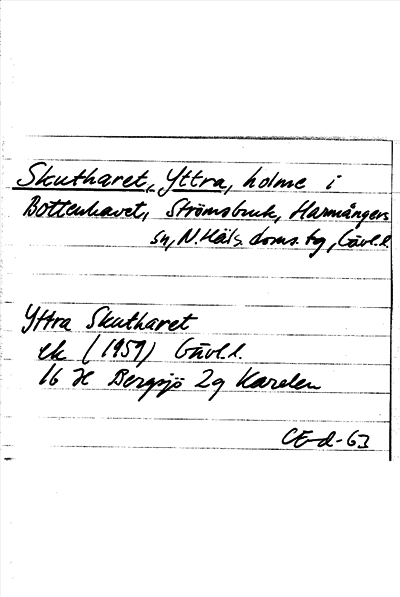 Skutharet, Yttra, holme i
Bottenhavet, Strömsbruk, Harmångers
sn, N. Häls. doms. tg, Gävl. l.
Yttra Skutharet
ek (1959) Gävl. l.
16 H Bergsjö 2g Karelen
CE-d-63